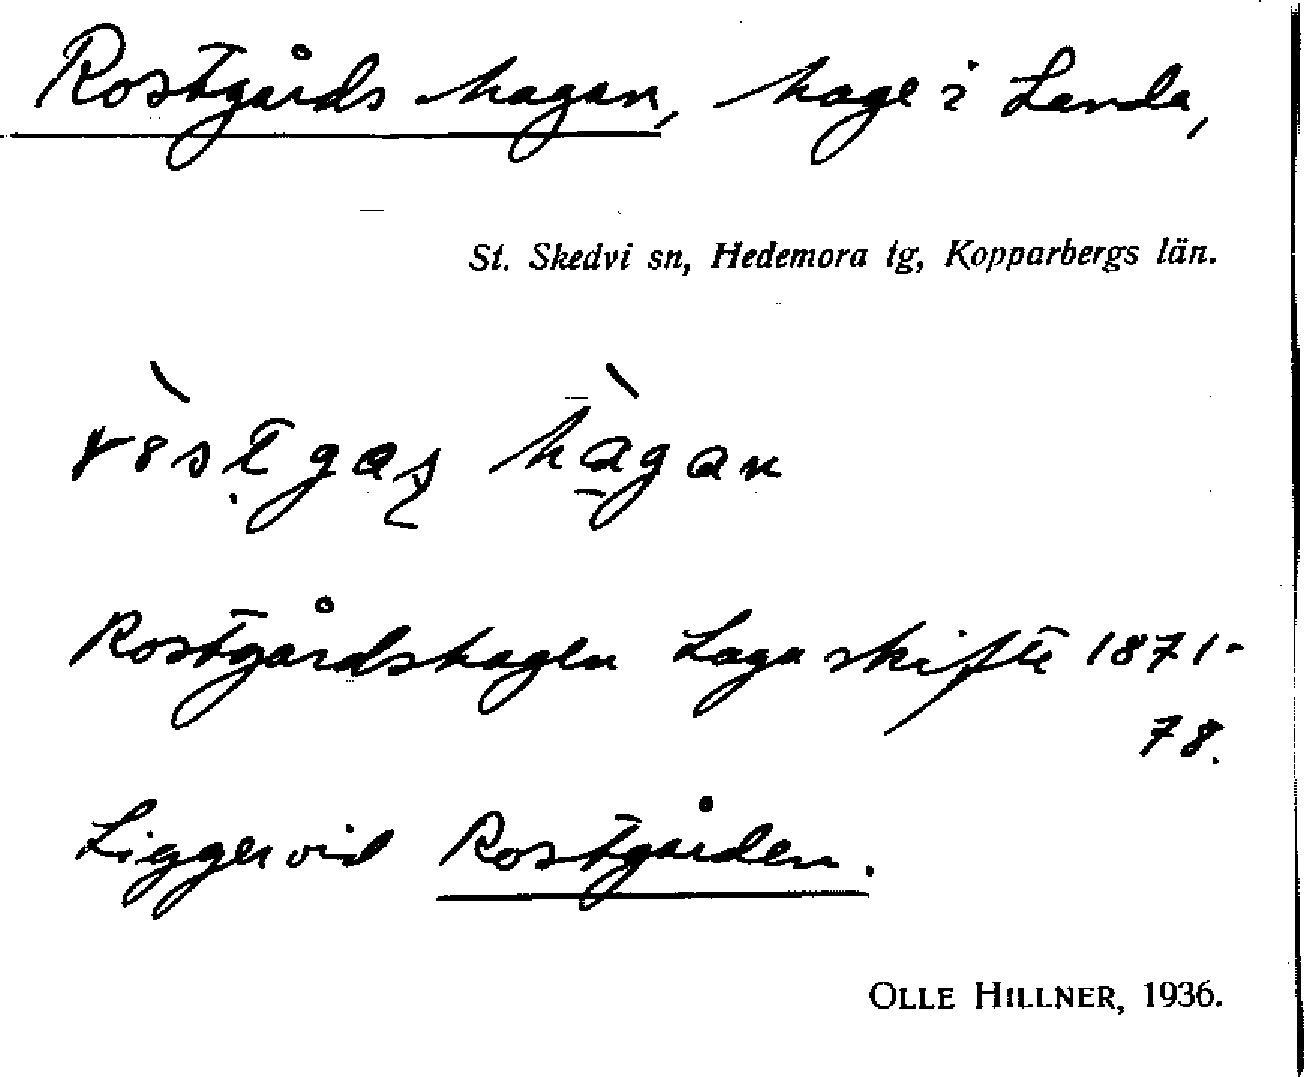 Rostgårds hagan, hage i Landa,
St. Skedvi sn, Hedemora tg, Kopparbergs län.
hagan
Rostgårdshagen Laga skifte 1871-
78.
Ligger vid Rostgården.
OLLE HILLNER, 1936.